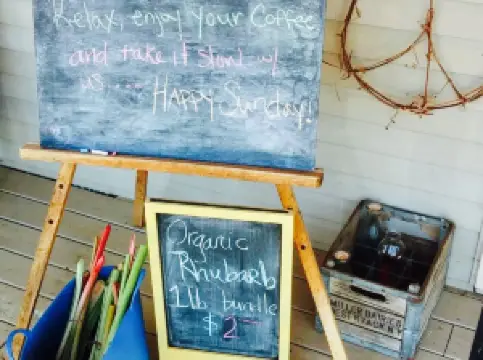 Relax, enjoy your Coffee
and take it slow w/
us....
HAPPY Sunday!
Organic
Rhubarb
1 lb bundle
$2
MILLER DAIRY CO.